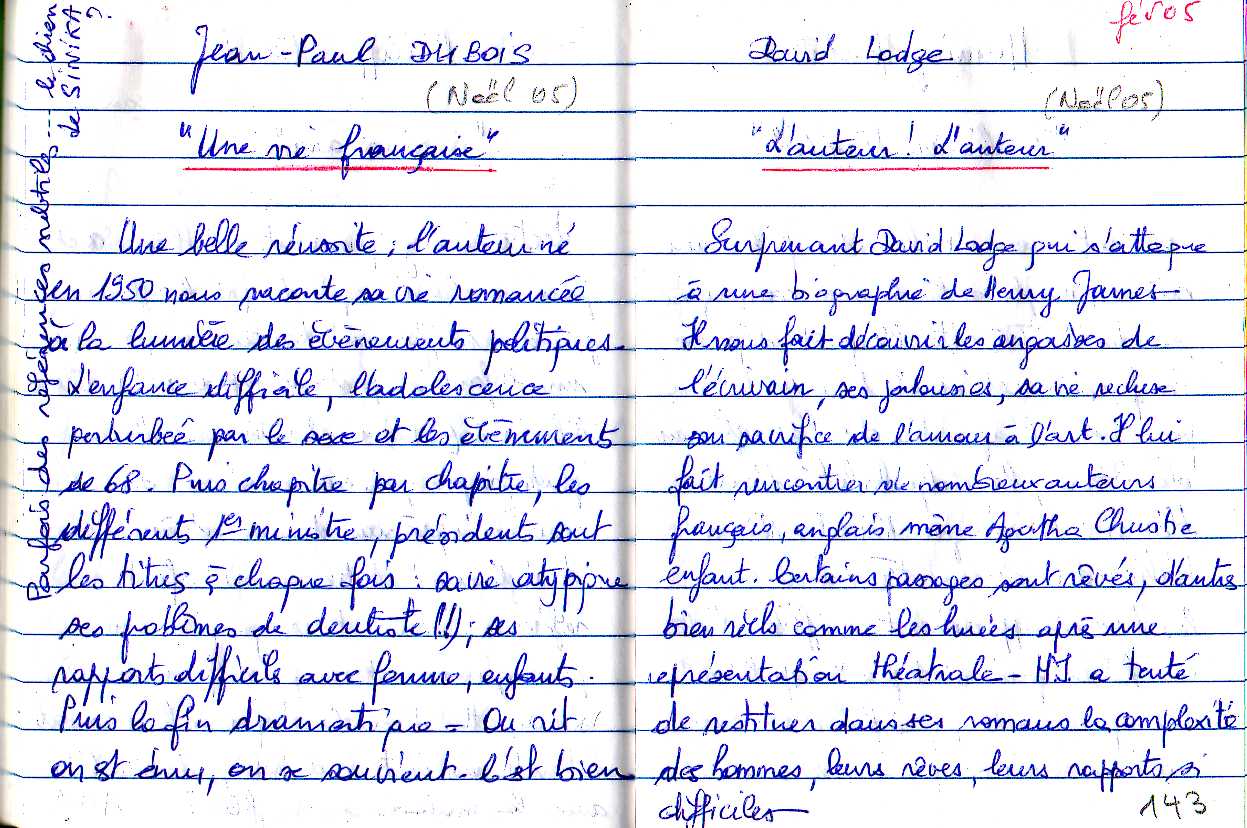 Parfois des références subtiles --- le chien de SINIKA ?
Jean-Paul DUBOIS
(Noël 05)
"Une vie française"
Une belle réussite ; l'auteur né
en 1950 nous raconte sa vie romancée
à la lumière des évènements politiques.
L'enfance difficile, l'adolescence
perturbée par le sexe et les évènements
de 68. Puis chapitre par chapitre, les
différents 1er ministre, présidents sont
les titres à chaque fois : sa vie atypique
ses problèmes de dentiste (!!) ; ses
rapports difficils avec femme, enfants.
Puis la fin dramatique - On rit
on est ému, on se souvient. C'est bien
fév 05
David Lodge
(Noël 05)
"L'auteur ! L'auteur"
Surprenant David Lodge qui s'attaque
à une biographie de Henry James -
Il nous fait découvrir les angoisses de
l'écrivain, ses jalousies, sa vie recluse
son sacrifice de l'amour à l'art. Il lui
fait rencontrer de nombreux auteurs
français, anglais même Agatha Christie
enfant. Certains passages sont rêvés, d'autres
bien réels comme les huées après une
représentation théatrale - H.J. a tenté
de restituer dans ses romans la complexité
des hommes, leurs rêves, leurs rapports si
difficiles -
143